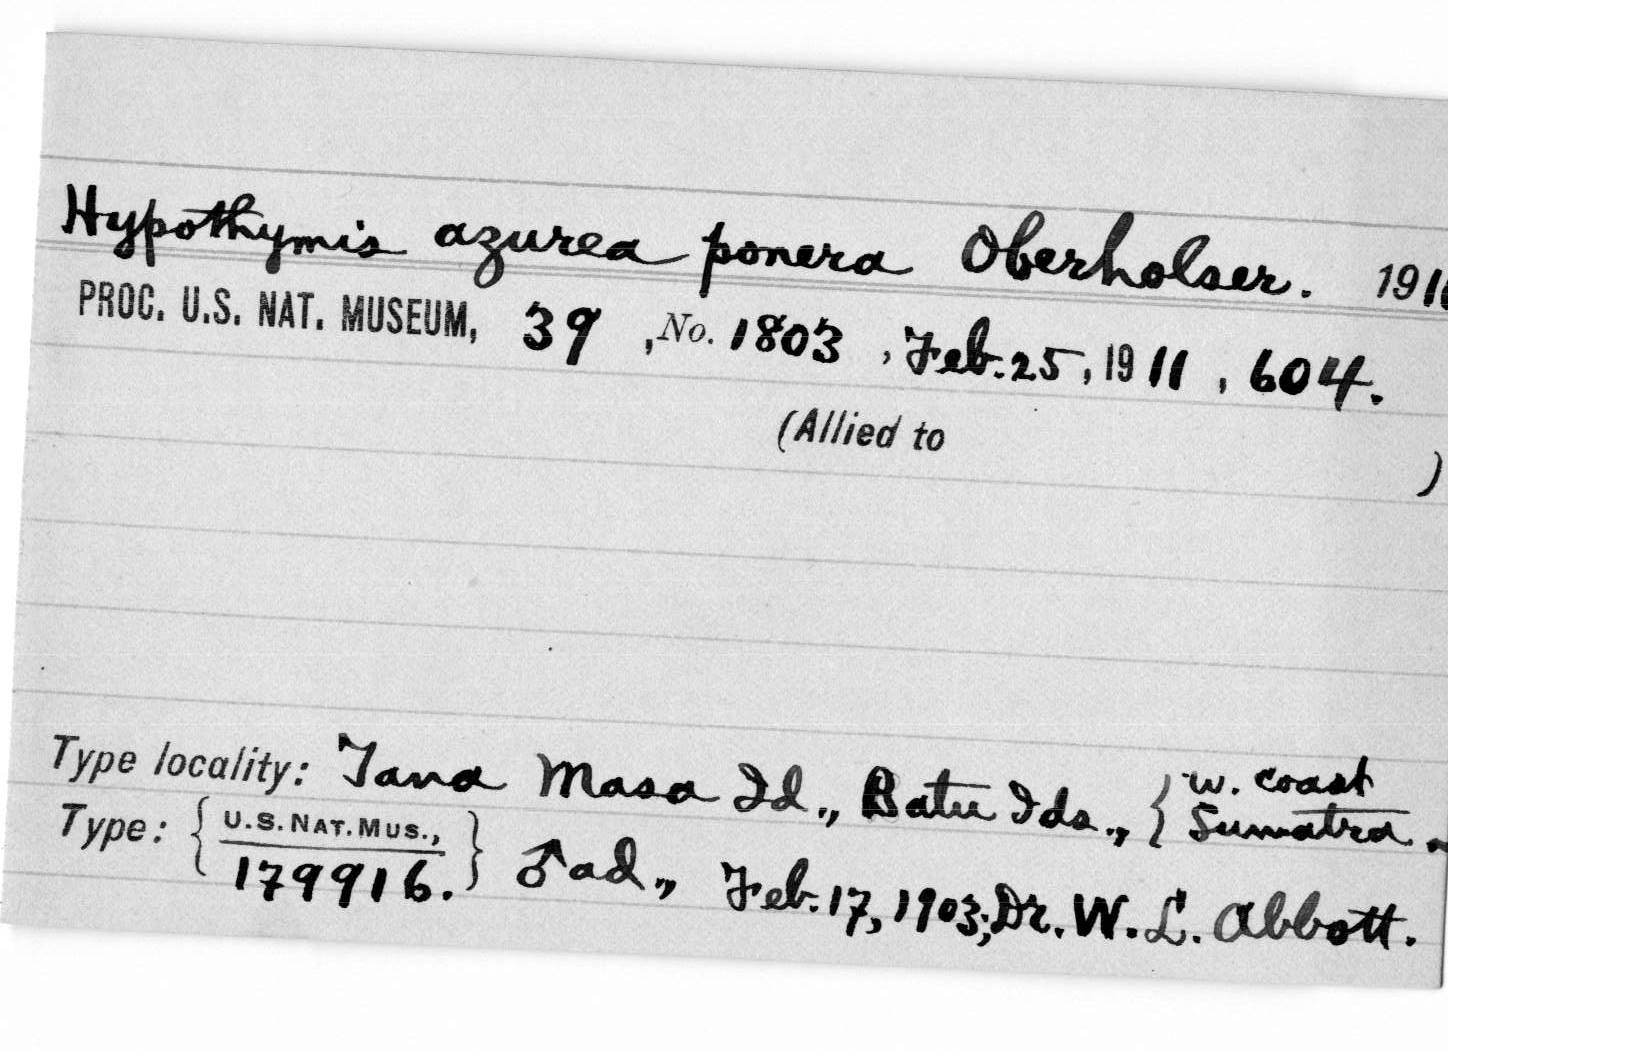 Hypothymis azurea ponera Oberholser. 1911
PROC. U.S. NAT. MUSEUM, 39, No. 1803, Feb. 25, 1911, 604.
(Allied to )
Type locality: Tana Masa Id., Batu Ids., { w. coast
Sumatra.
Type: { U.S. NAT. MUS.,
179916. } ♂ ad., Feb. 17, 1903; Dr. W. L. Abbott.